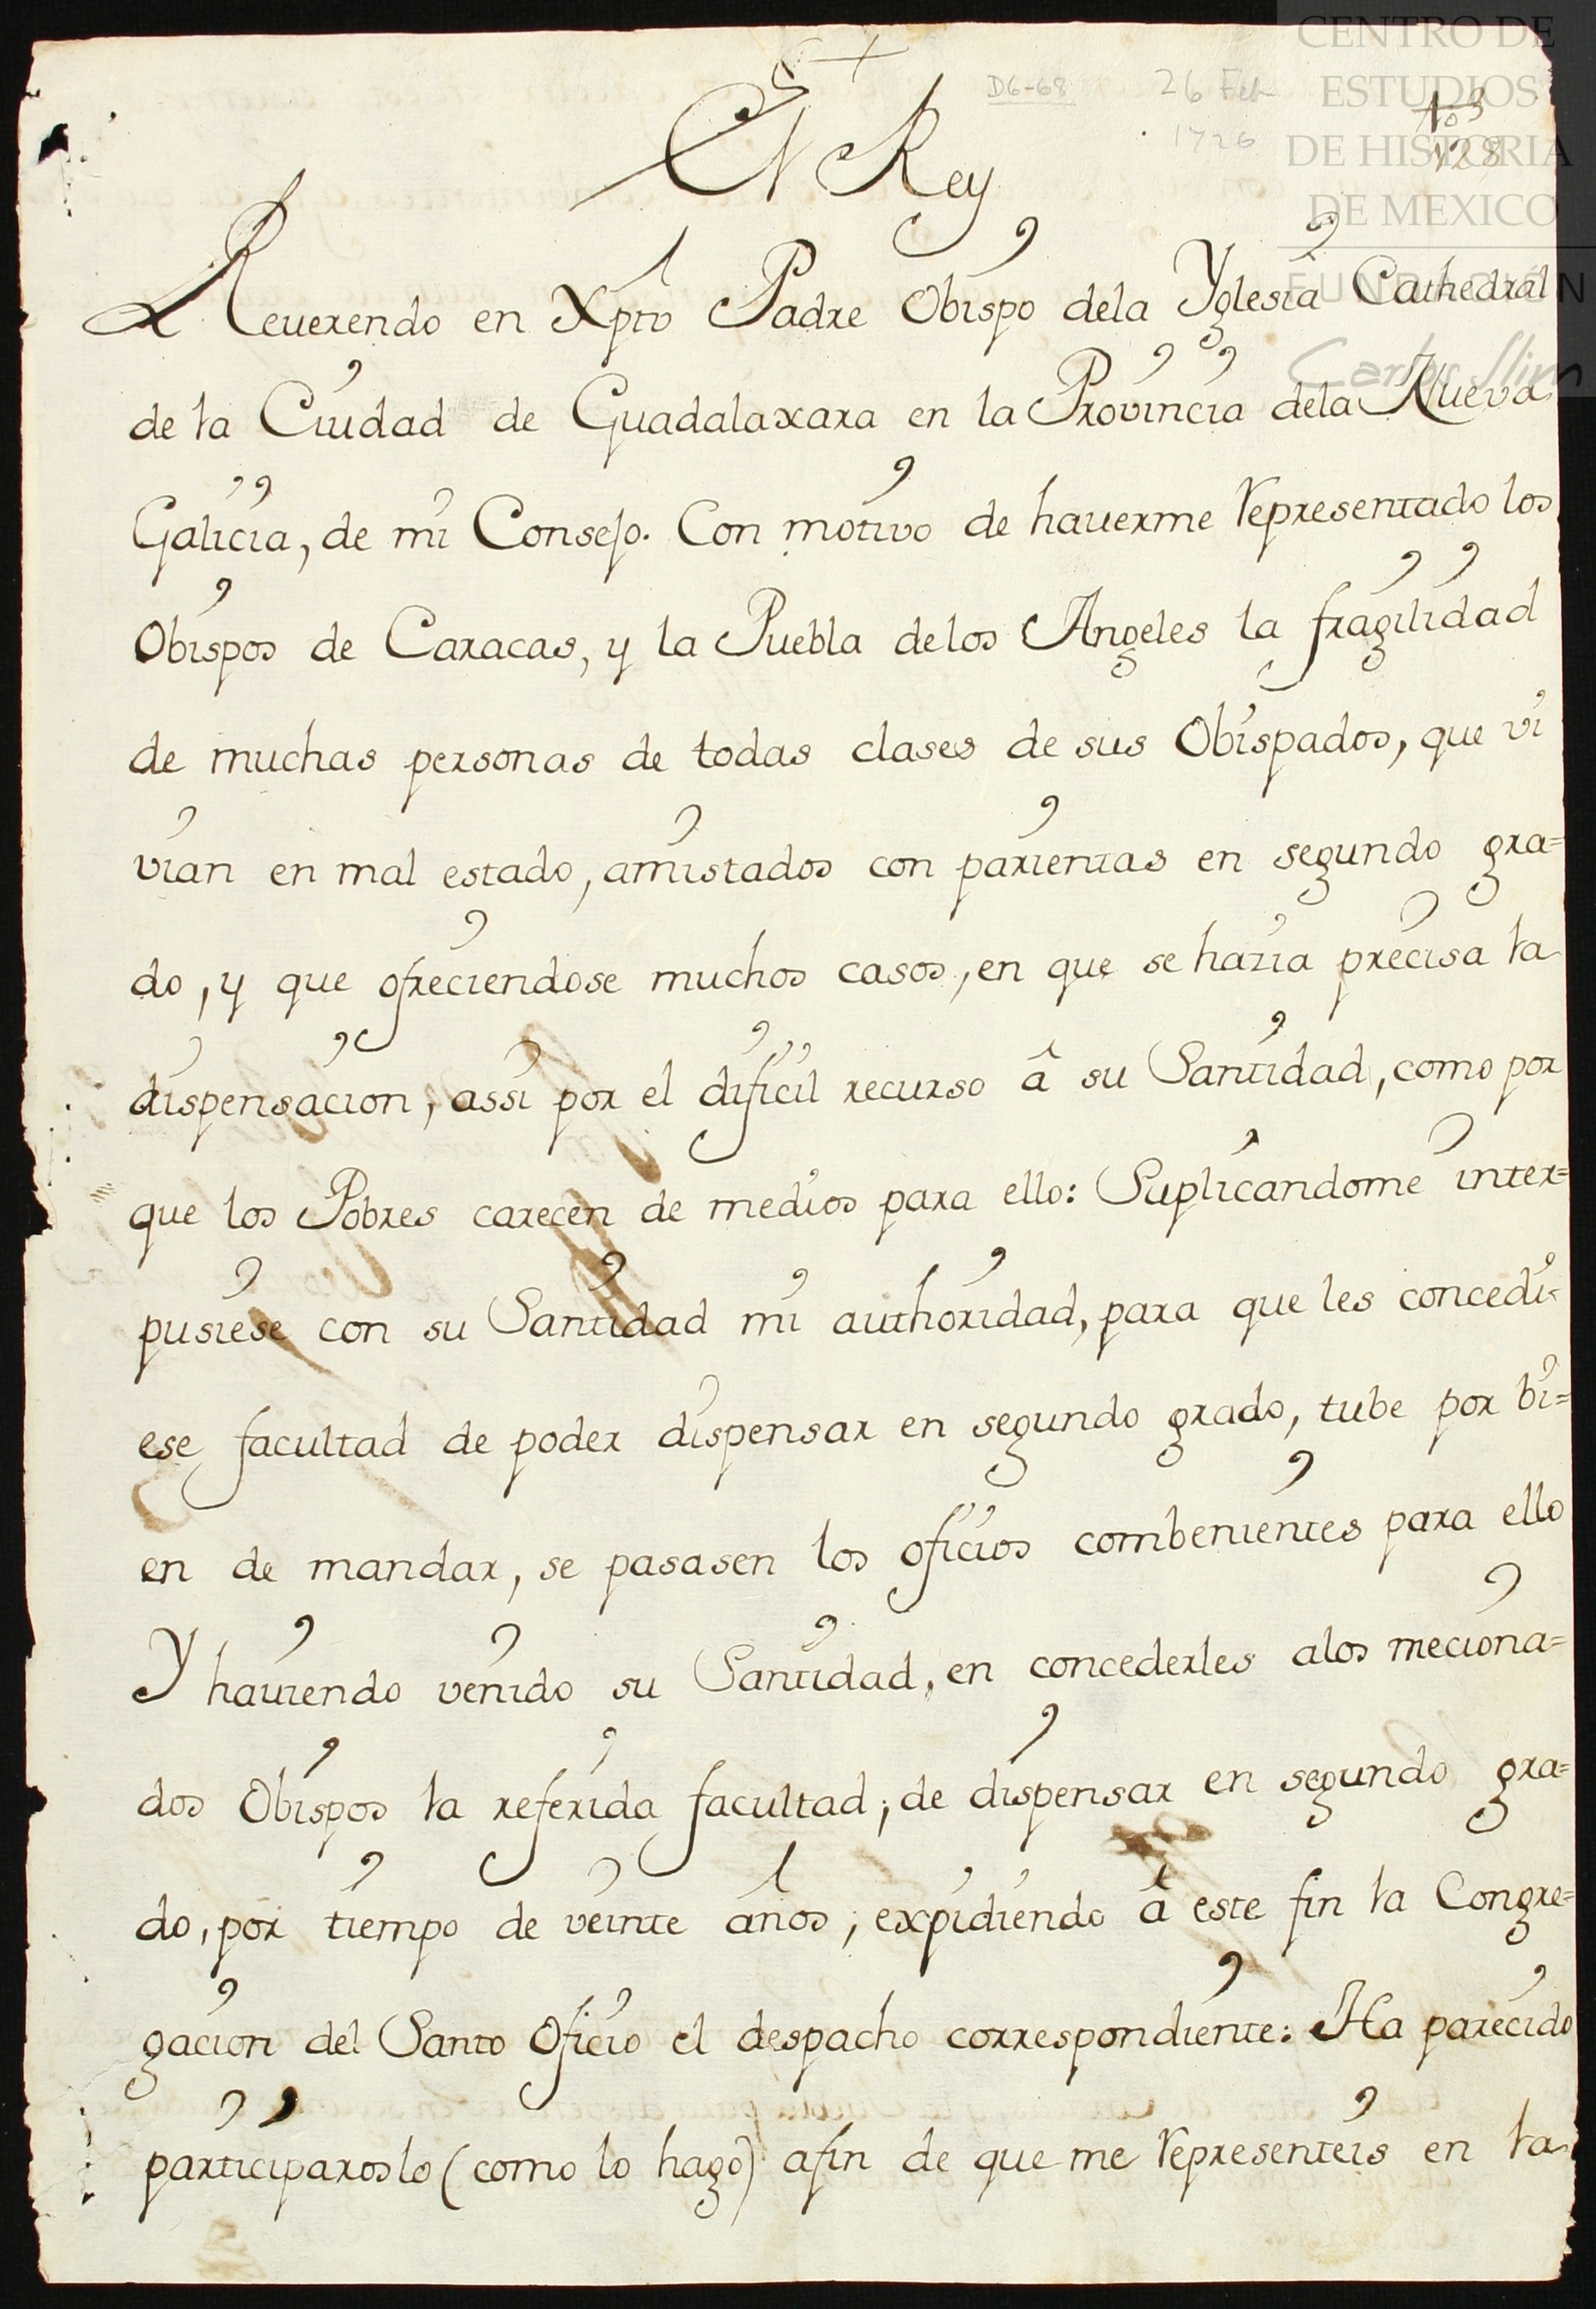 D6-68 26 Feb
1726
128
CENTRO DE
ESTUDIOS
DE HISTORIA
DE MEXICO
FUNDACIÓN
Carlos Slim
El Rey
Reuerendo en Xpto Padre Obispo dela Yglesia Cathedral
de la Ciudad de Guadalaxara en la Provincia dela Nueva
Galicia, de mi Consejo. Con motivo de hauerme representado los
Obispos de Caracas, y la Puebla delos Angeles la fragilidad
de muchas personas de todas clases de sus Obispados, que vi
vian en mal estado, amistados con parientas en segundo gra=
do, y que ofreciendose muchos casos, en que se hazia precisa la
dispensacion, assi por el dificil recurso â su Santidad, como por
que los Pobres carecen de medios para ello: Suplicandome inter=
pusiese con su Santidad mi authoridad, para que les concedi-
ese facultad de poder dispensar en segundo grado, tube por bi=
en de mandar, se pasasen los oficios combenientes para ello
Y hauiendo venido su Santidad, en concederles alos meciona=
dos Obispos la referida facultad, de dispensar en segundo gra=
do, por tiempo de veinte años, expidiendo â este fin la Congre=
gacion del Santo Oficio el despacho correspondiente: Ha parecido
participaroslo (como lo hago) afin de que me representeis en la